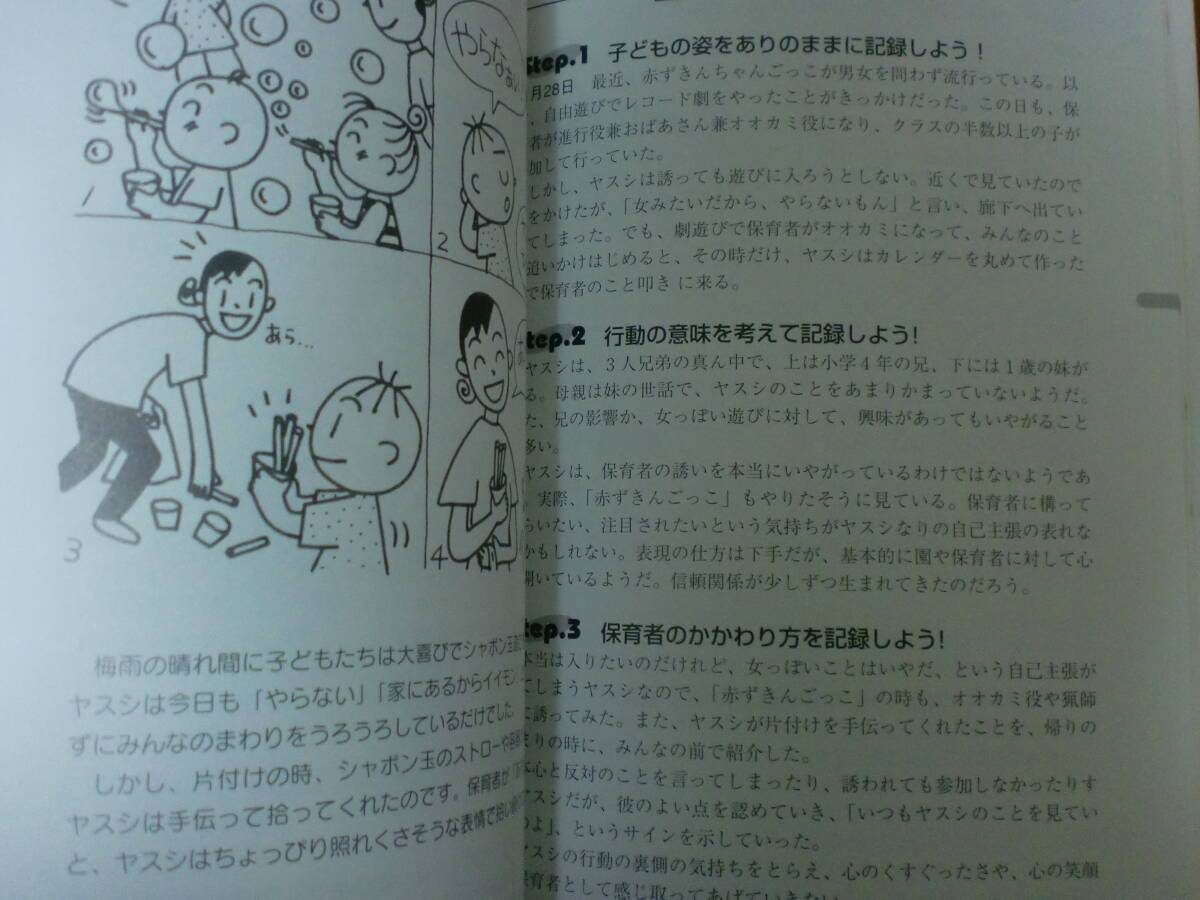 やらなぁい
1
2
あら…
3
4
梅雨の晴れ間に子どもたちは大喜びでシャボン玉
ヤスシは今日も「やらない」「家にあるからイイモン
ずにみんなのまわりをうろうろしているだけでした
しかし、片付けの時、シャボン玉のストローや
ヤスシは手伝って拾ってくれたのです。保育者が「
と、ヤスシはちょっぴり照れくさそうな表情で拾い
Step.1 子どもの姿をありのままに記録しよう！
月28日 最近、赤ずきんちゃんごっこが男女を問わず流行っている。以
、自由遊びでレコード劇をやったことがきっかけだった。この日も、保
者が進行役兼おばあさん兼オオカミ役になり、クラスの半数以上の子が
加して行っていた。
しかし、ヤスシは誘っても遊びに入ろうとしない。近くで見ていたので
をかけたが、「女みたいだから、やらないもん」と言い、廊下へ出てい
てしまった。でも、劇遊びで保育者がオオカミになって、みんなのこと
追いかけはじめると、その時だけ、ヤスシはカレンダーを丸めて作った
で保育者のこと叩きに来る。
tep.2 行動の意味を考えて記録しよう！
ヤスシは、3人兄弟の真ん中で、上は小学4年の兄、下には1歳の妹が
る。母親は妹の世話で、ヤスシのことをあまりかまっていないようだ。
た、兄の影響か、女っぽい遊びに対して、興味があってもいやがること
多い。
ヤスシは、保育者の誘いを本当にいやがっているわけではないようであ
。実際、「赤ずきんごっこ」もやりたそうに見ている。保育者に構って
らいたい、注目されたいという気持ちがヤスシなりの自己主張の表れな
かもしれない。表現の仕方は下手だが、基本的に園や保育者に対して心
開いているようだ。信頼関係が少しずつ生まれてきたのだろう。
tep.3 保育者のかかわり方を記録しよう！
本当は入りたいのだけれど、女っぽいことはいやだ、という自己主張が
てしまうヤスシなので、「赤ずきんごっこ」の時も、オオカミ役や猟師
に誘ってみた。また、ヤスシが片付けを手伝ってくれたことを、帰りの
まりの時に、みんなの前で紹介した。
本心と反対のことを言ってしまったり、誘われても参加しなかったりす
ヤスシだが、彼のよい点を認めていき、「いつもヤスシのことを見てい
のよ」、というサインを示していった。
ヤスシの行動の裏側の気持ちをとらえ、心のくすぐったさや、心の笑顔
保育者として感じ取ってあげていきたい。